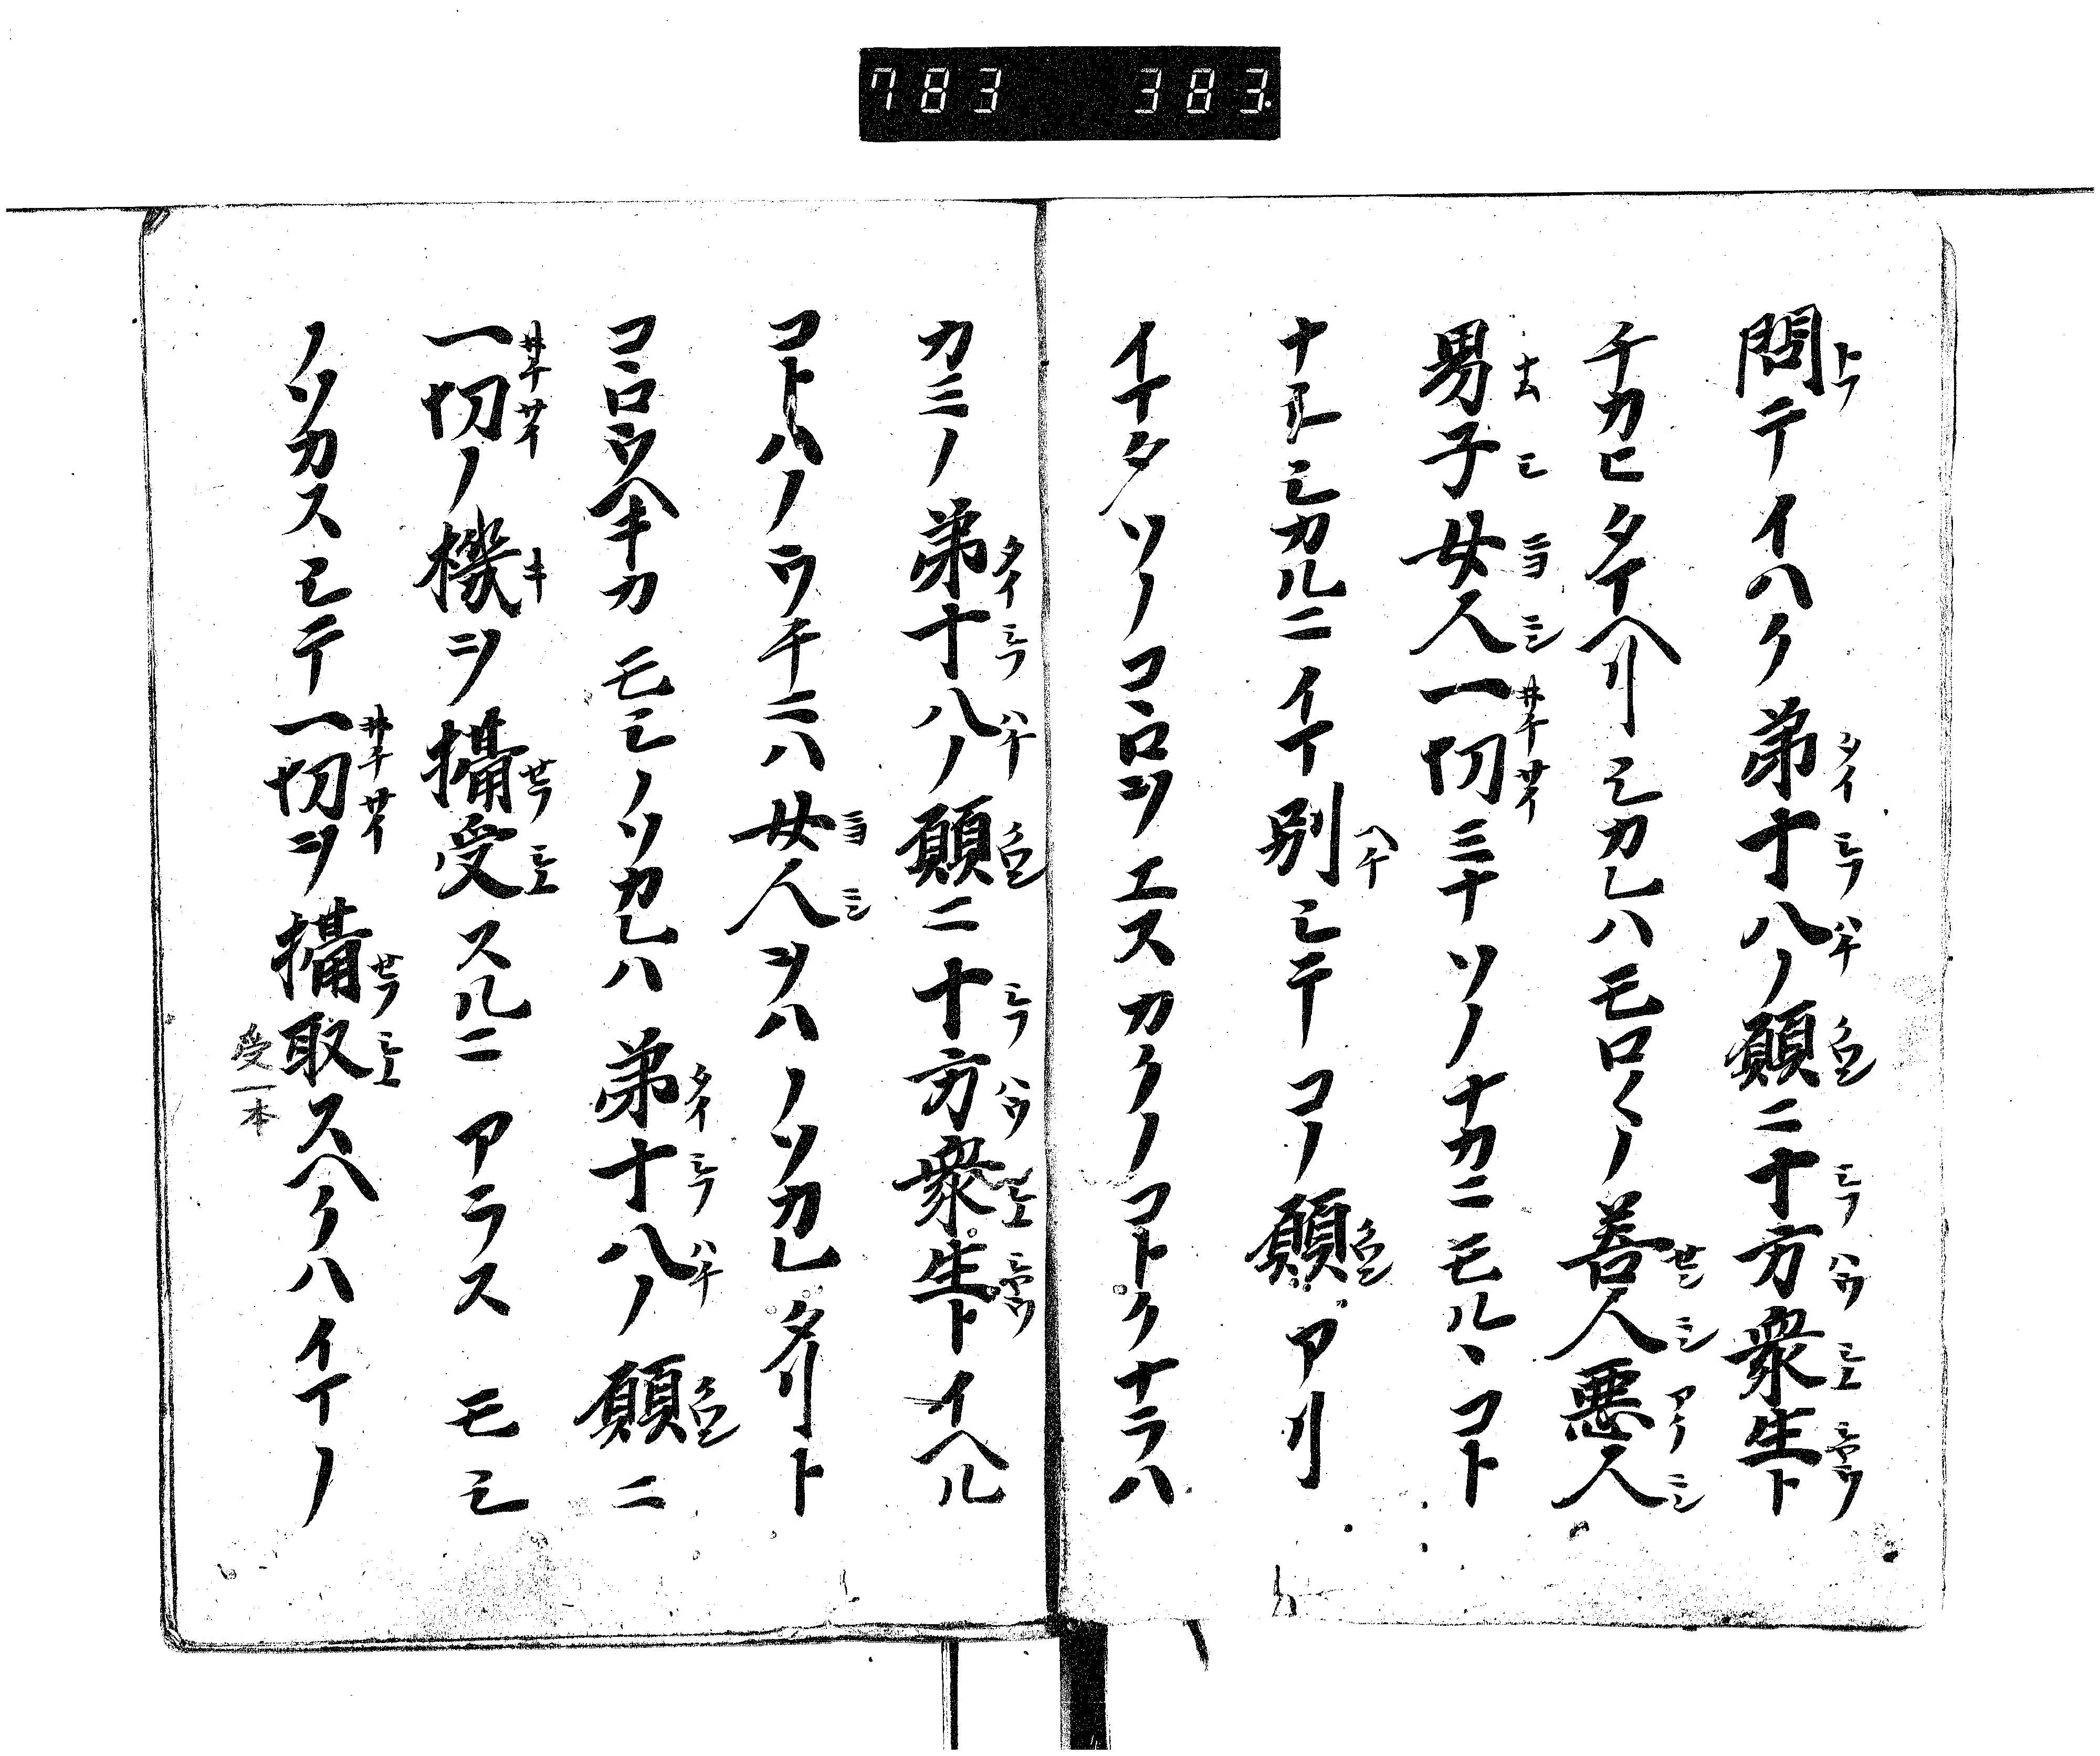 783 383.
問テイハク弟十八ノ願ニ十方衆生ト
チカヒタマヘリシカレハモロ〱ノ善人悪人
男子女人一切ミナソノナカニモルヽコト
ナシシカルニイマ別シテコノ願アリ
イマタソノコヽロヲエスカクノコトクナラハ
カミノ弟十八ノ願ニ十方衆生トイヘル
コトハノウチニハ女人ヲハノソカレタリト
コヽロウヘキカモシノソカレハ弟十八ノ願ニ
一切ノ機ヲ攝受スルニアラスモシ
ノソカスシテ一切ヲ攝取スヘクハイマノ
受一本